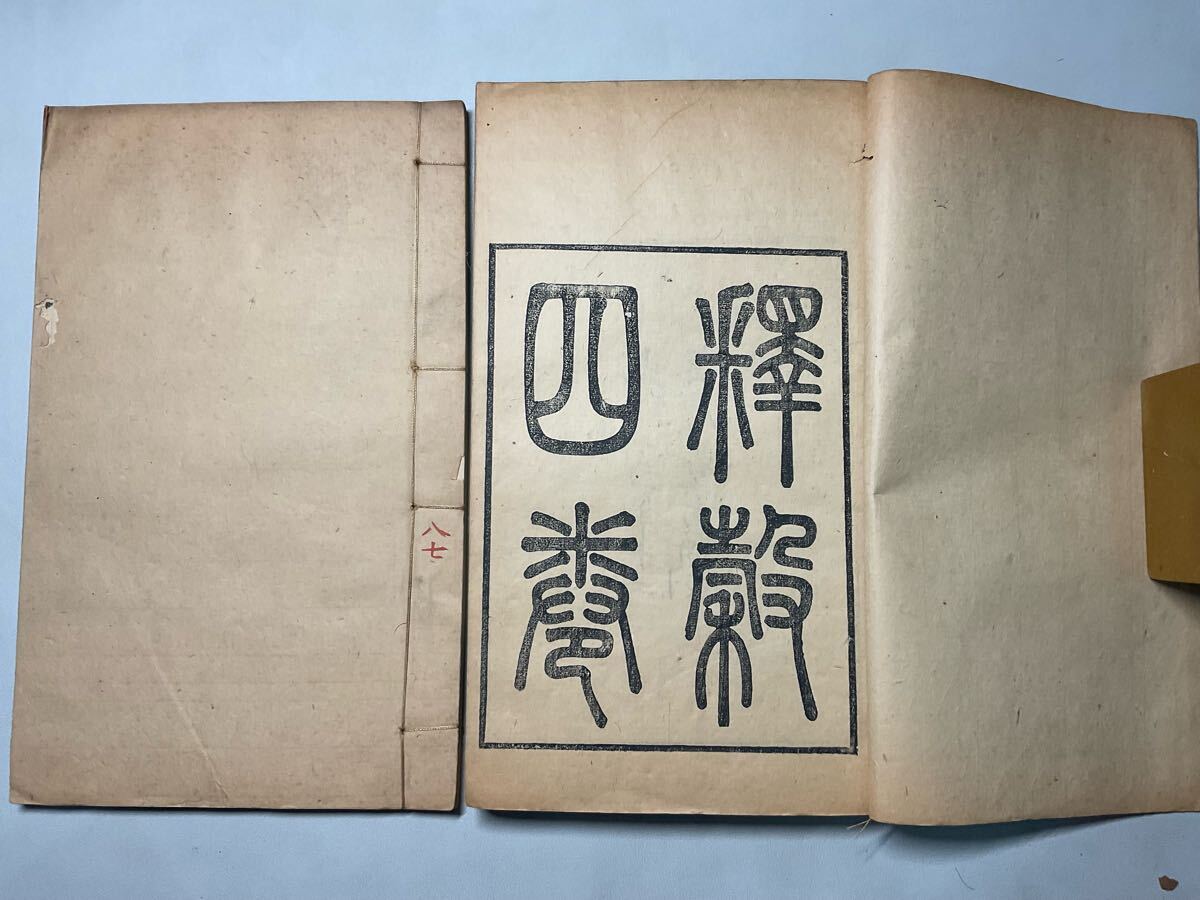 釋穀
四卷
八七